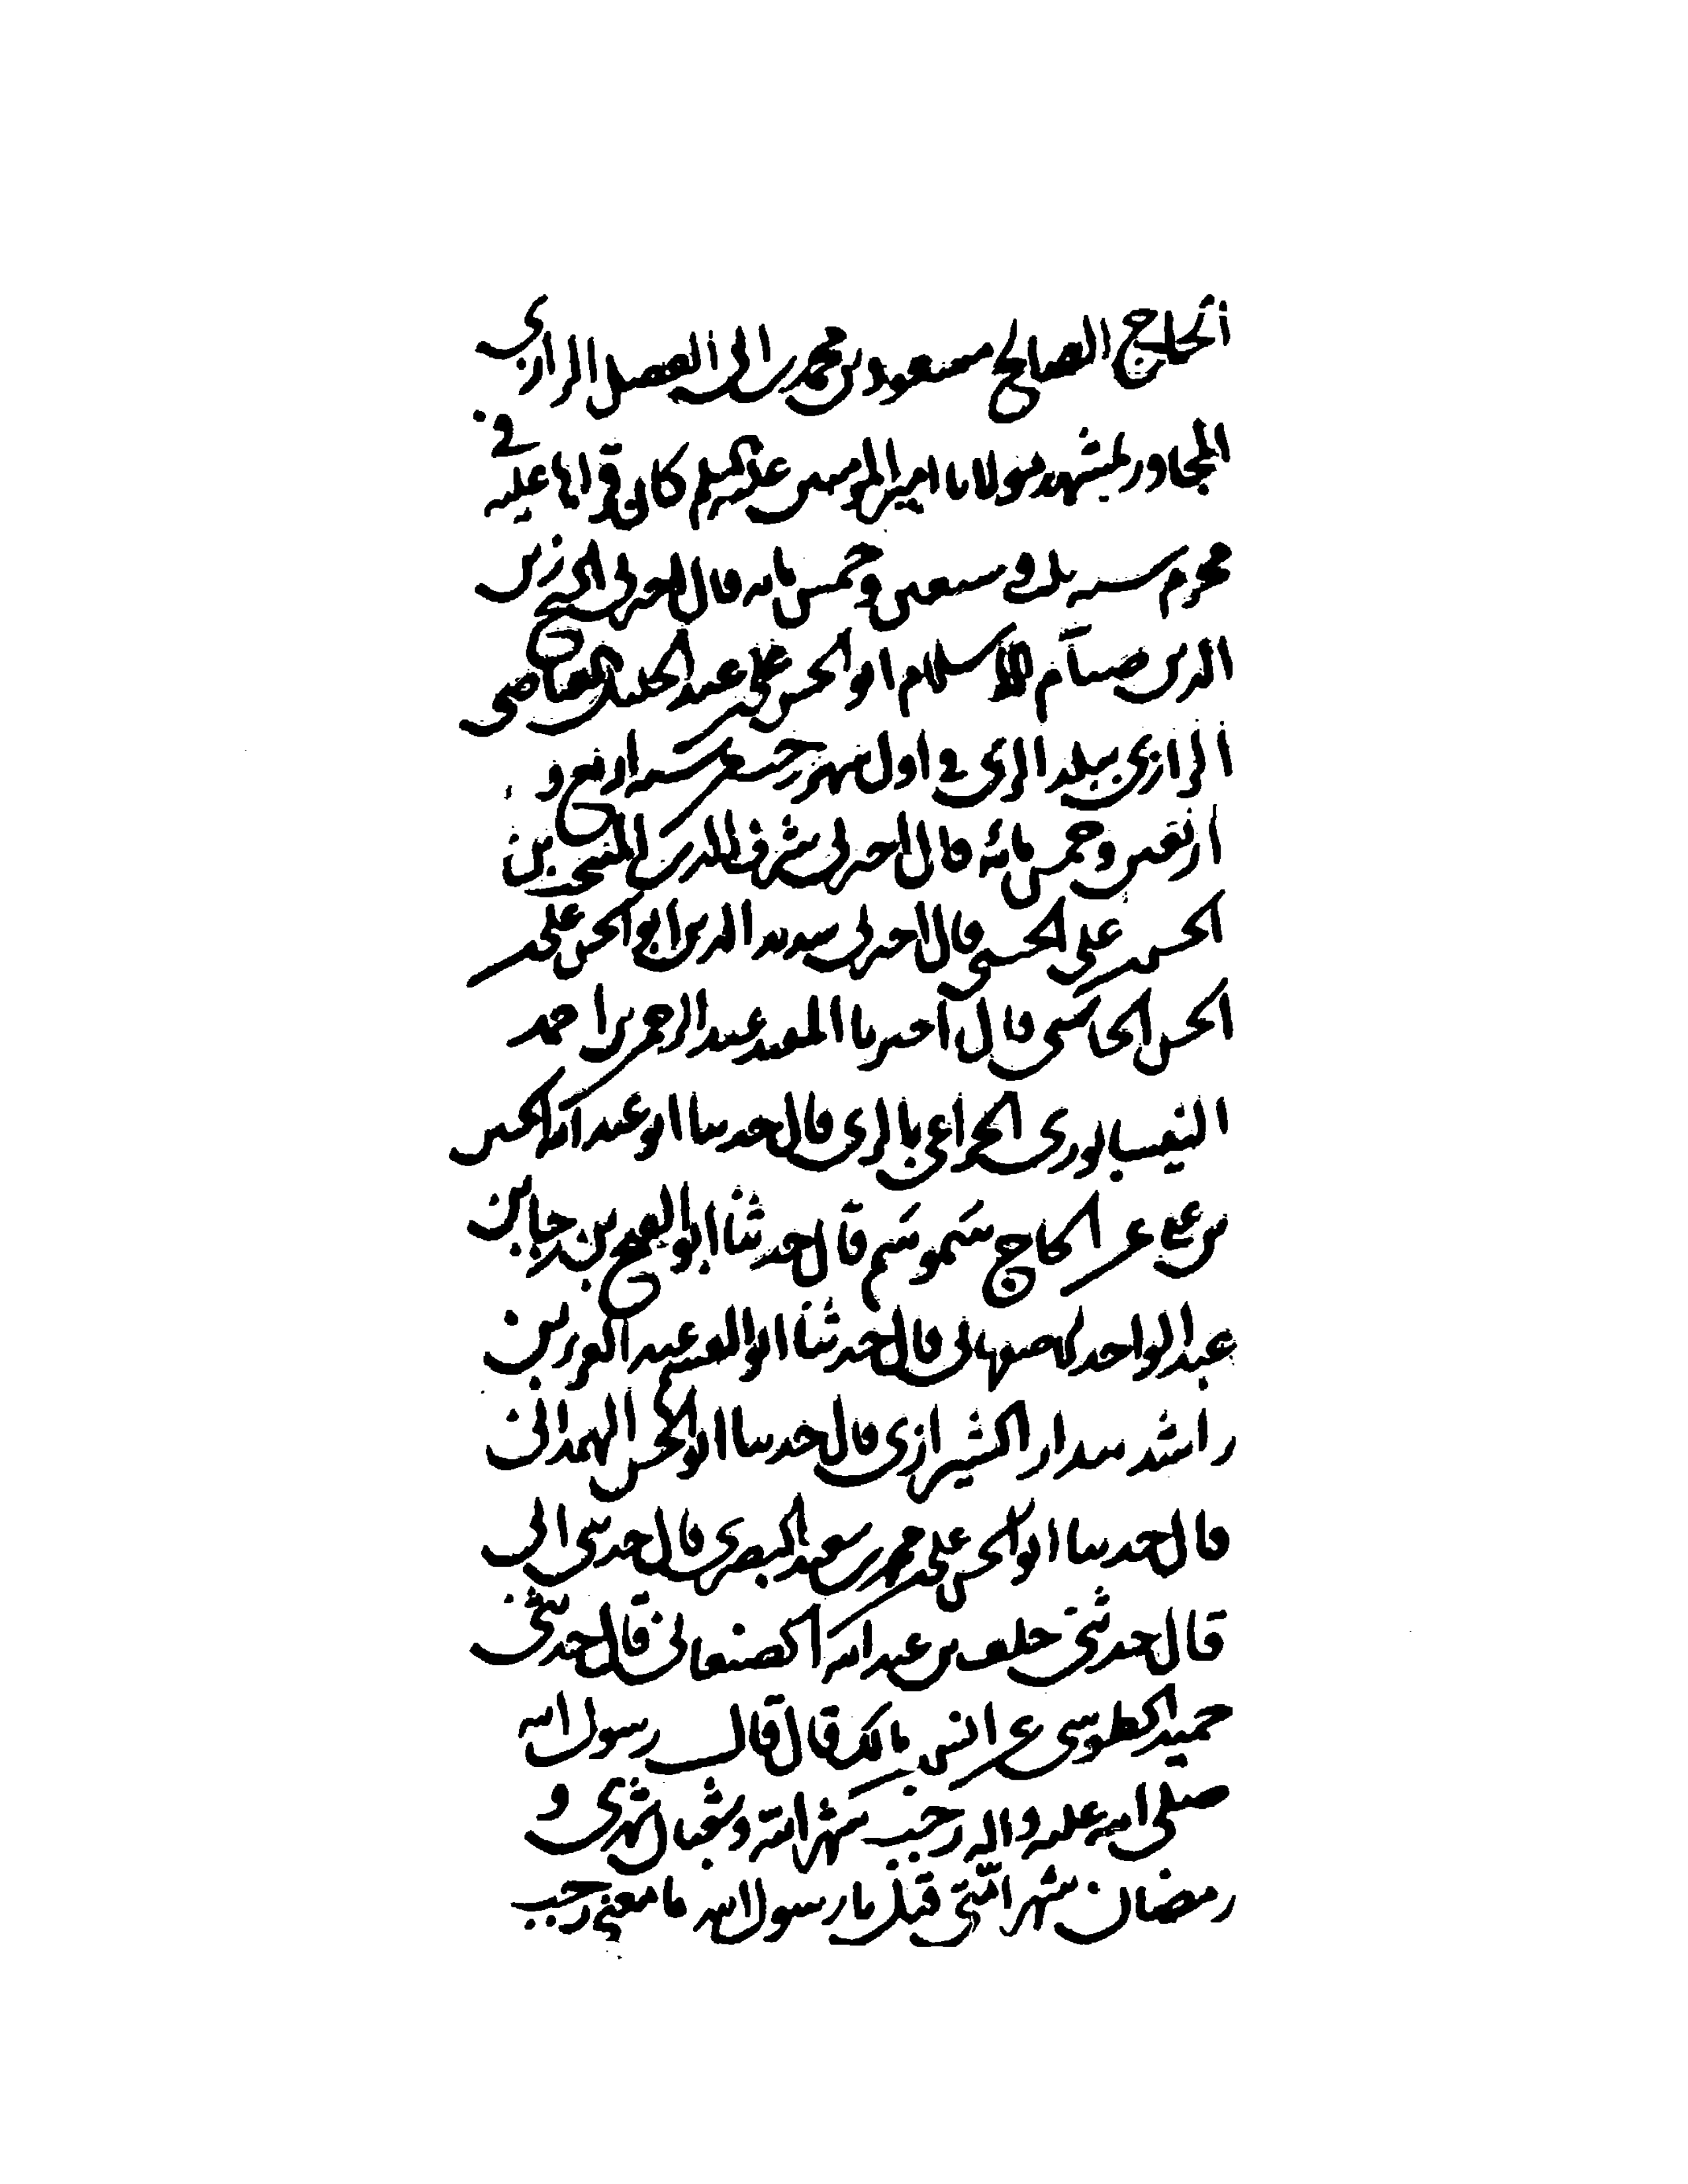 الحاج الصالح مسعود بن محمد بن ابى الفضل الرازى
المجاور بمشهد مولانا امير المومنين عليه السلم قراءة عليه في
محرم سنه ثلث وسبعين وخمس مائه قال اخبرنى الشيخ زين
الدين الاسلام ابو الحسن على بن عبد الجليل القاضى
الرازى ببلد الرى في اول شهر رجب سنه اربع و
اربعين وخمس مائه قال اخبرنى شرف الدين المنتجب بن
الحسن بن على الحسنى قال اخبرنى سديد الدين ابو الحسن على بن
الحسن قال اخبرنا المفيد عبد الرحمن بن احمد
النيسابورى الخزاعى بالرى قال حدثنا ابو عبد الله الحسين
بن على عن الحاج قال حدثنا ابو الفتح بن رجا بن
عبد الواحد الاصبهانى قال حدثنا ابو القسم عبد العزيز بن
راشد بن بندار الشيرازى قال حدثنا ابو الحسن الهمدانى
قال حدثنا ابو الحسن على بن محمد بن سعيد البصرى قال حدثنى ابى
قال حدثنى خلف بن عبد الله الصنعانى قال حدثنى
حميد الطوسى عن انس بن مالك قال قال رسول الله
صلى الله عليه واله رجب شهر الله وشعبان شهرى و
رمضان شهر امتى قيل يا رسول الله ما معنى رجب